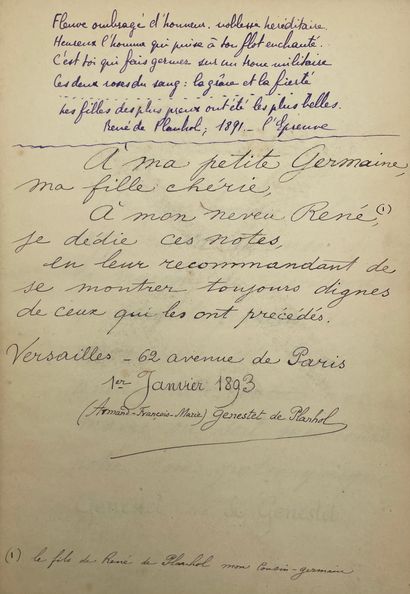 Fleuve ombragé d'honneur, noblesse héréditaire.
Heureux l'homme qui puise à ton flot enchanté.
C'est toi qui fais germer sur un tronc militaire
Ces deux roses du sang : la grâce et la fierté
Les filles des plus preux ont été les plus belles.
René de Planhol, 1891. - l'Epreuve
À ma petite Germaine,
ma fille chérie,
À mon neveu René, (1)
je dédie ces notes,
en leur recommandant de
se montrer toujours dignes
de ceux qui les ont précédés.
Versailles - 62 avenue de Paris
1er Janvier 1893
(Armand-François-Marie) Genestet de Planhol
Genestet
(1) le fils de René de Planhol mon Cousin-germain